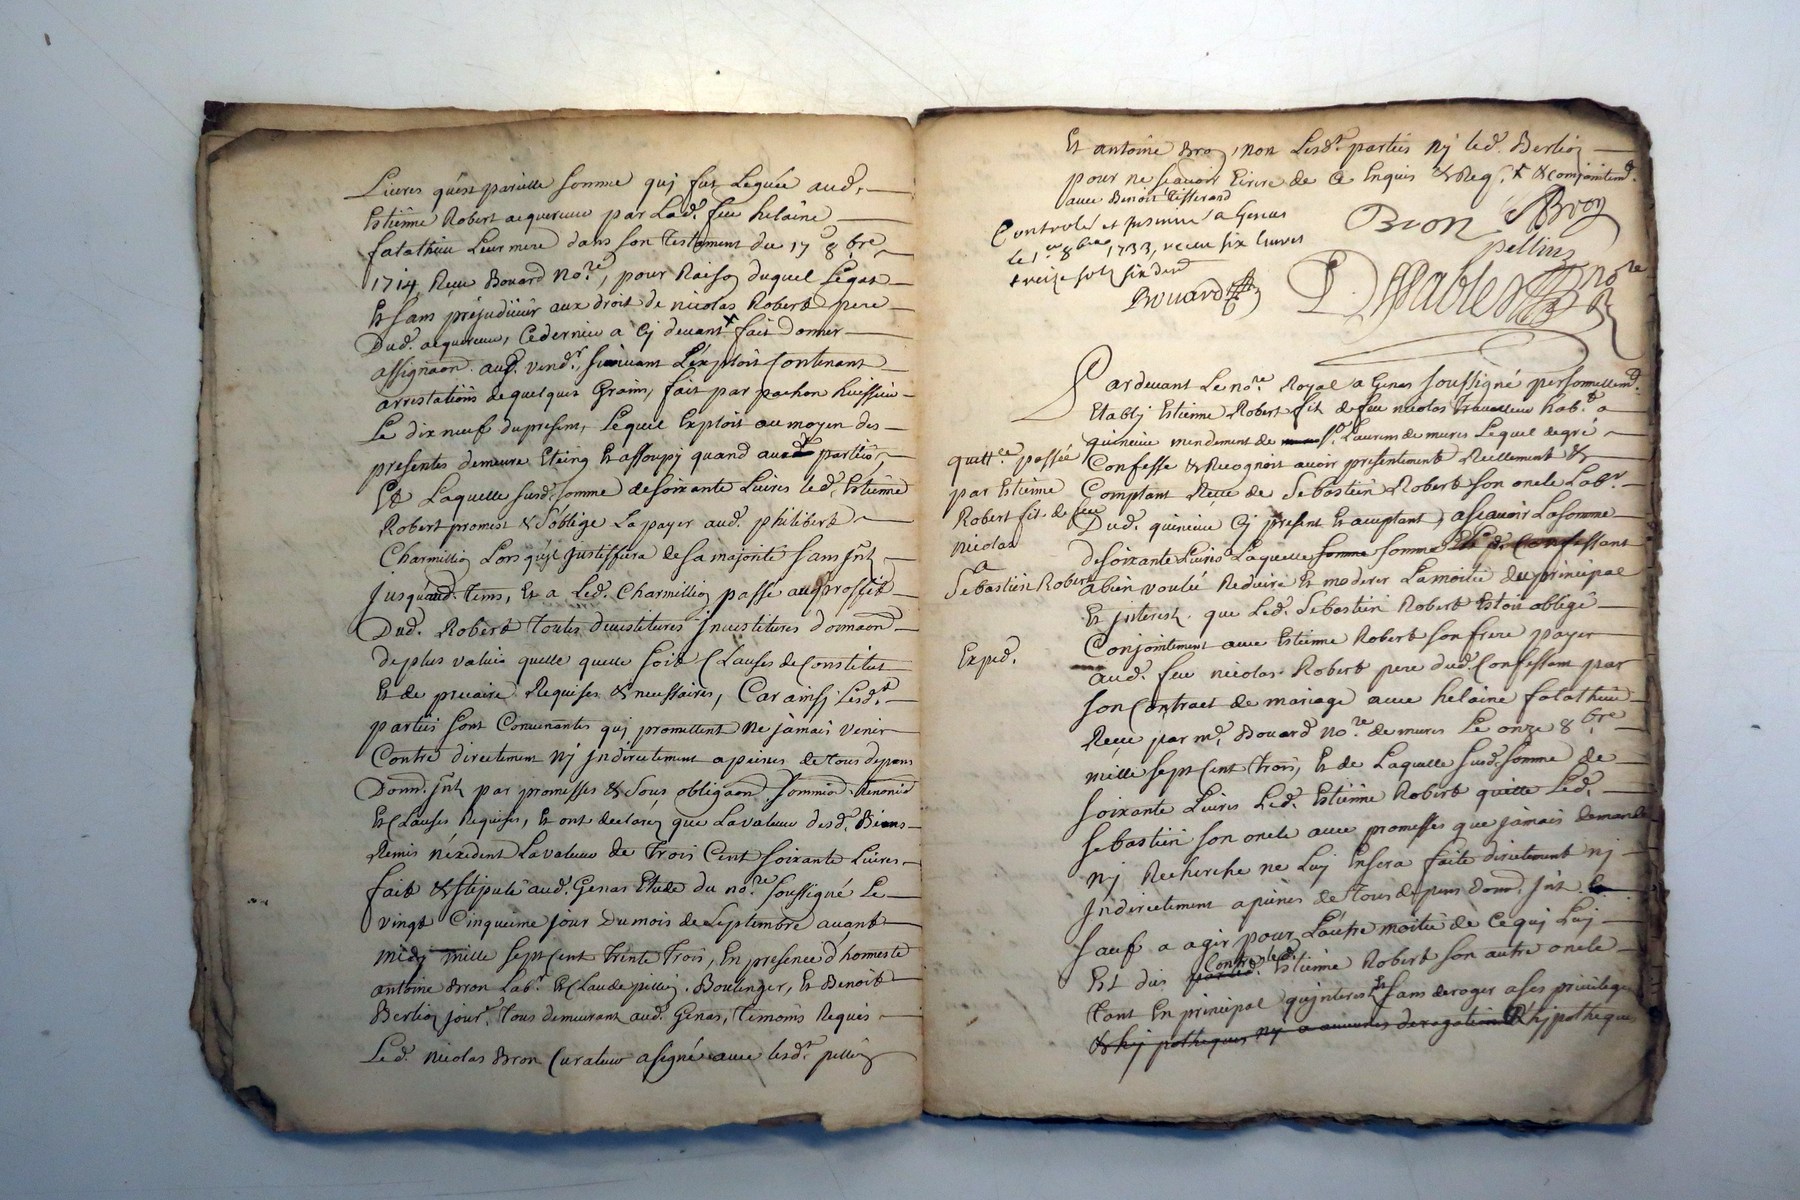 Livres qu'est pareille somme quj fut Leguée aud.
Estienne Robert acquereur par Lad. feu helaine
fatathieu Leur mere dans son Testament du 17 8.bre
1714, Reçu Bouard No.re, pour Raison duquel Legat
Et sans prejudicier aux droit de nicolas Robert pere
Dud. acquereur, Cedernier a Cj devant + fait donner
assignaon. aud. vend.r, suivant L'exploit Contenant
arrestations de quelques Grains, fait par pachon huissier
Le dix neuf du present, Lequel Exploit au moyen des
presentes demeure Eteing Et assoupj quand aux parties,
Et Laquelle susd. somme de soixante Livres led. Estienne
Robert promest & s'oblige La payer aud. philibert
Charmillion Lors qu'il Justiffiera de sa majorité sans Jnt.
Jusquaud. tems, Et a Led. Charmillion passé au proffit
Dud. Robert toutes devestitures Jnvestitures donnaon.
de plus values quelle quelle soit Clauses de Constitut
Et de precaire Requises & necessaires, Car ainsj Lesd.
parties sont Convenantes quj promettent ne jamais venir
Contre directement nj Jndirectement a peines de tous depens
Dom. Jnt. par promesses & sous obligaon. soumiõn Renonciõ
Et Clauses Requises, Et ont declaré que La valeur desd. Biens
Remis n'exedent La valeur de trois Cent soixante Livres
fait & stipulé aud. Genas Etude du no.re soussigné Le
vingt Cinquieme jour Dumois de Septembre avant
midj mille sept Cent trente trois, En presence d'honneste
antoine Bron Lab.r Et Claude pellin, Boulanger, Et Benoit
Berlion jour.r tous demeurant aud. Genas, temoins Requis
Led. nicolas Bron Curateur a signé avec lesd. pellin
Et antoine Bron, non Lesd. parties nj led. Berlion
pour ne sçavoir Ecrire de Ce Enquis & Req. + & Conjointemt.
avec Benoit Tisserand
Controlé et Insinué a Genas
Le 1.er 8bre 1733, receu six livres
treize sols six den
Bron Bron
pellin
Bouard
Dessables no.re
Pardevant Le no.re Royal a Genas soussigné personnellemt.
Etablj Estienne Robert fil de feu nicolas travailleur hab.t a
quincieu mendement de St. Laurens de mures Lequel de gré
Confesse & Recognoit avoir presentement Reellement &
Comptant Reçu de Sebastien Robert son oncle Lab.r
Dud. quincieu Cj present Et aceptant, a sçavoir La somme
de soixante Livres Laquelle somme somme Led. Confessant
a bien voulue Reduire Et moderer La moitié du principal
Et jnterest que Led. Sebastien Robert Estoit obligé
Conjointement avec Estienne Robert son frere payer
aud. feu nicolas Robert pere dud. Confessant par
son Contract de mariage avec helaine fatathieu
Reçu par m.e Bouard no.re de mures Le onze 8.bre
mille sept Cent trois, Et de Laquelle susd. somme de
soixante Livres Led. Estienne Robert quitte Led.
Sebastien son oncle avec promesses que jamais demande
nj Recherche ne Luj En sera faite directement nj
Jndirectement a peines de tous depens dom. Jnt.
sauf a agir pour L'autre moitié de Ce quj Luj
Est dus Contre led. Estienne Robert son autre oncle
tant En principal qu'jnterest sans deroger a ses privileges
& hypotheques nj a aucunes derogations & hipotheques
quitt.ce passée
par Estienne
Robert fil de feu
Nicolas
a
Sebastien Robert
Exped.